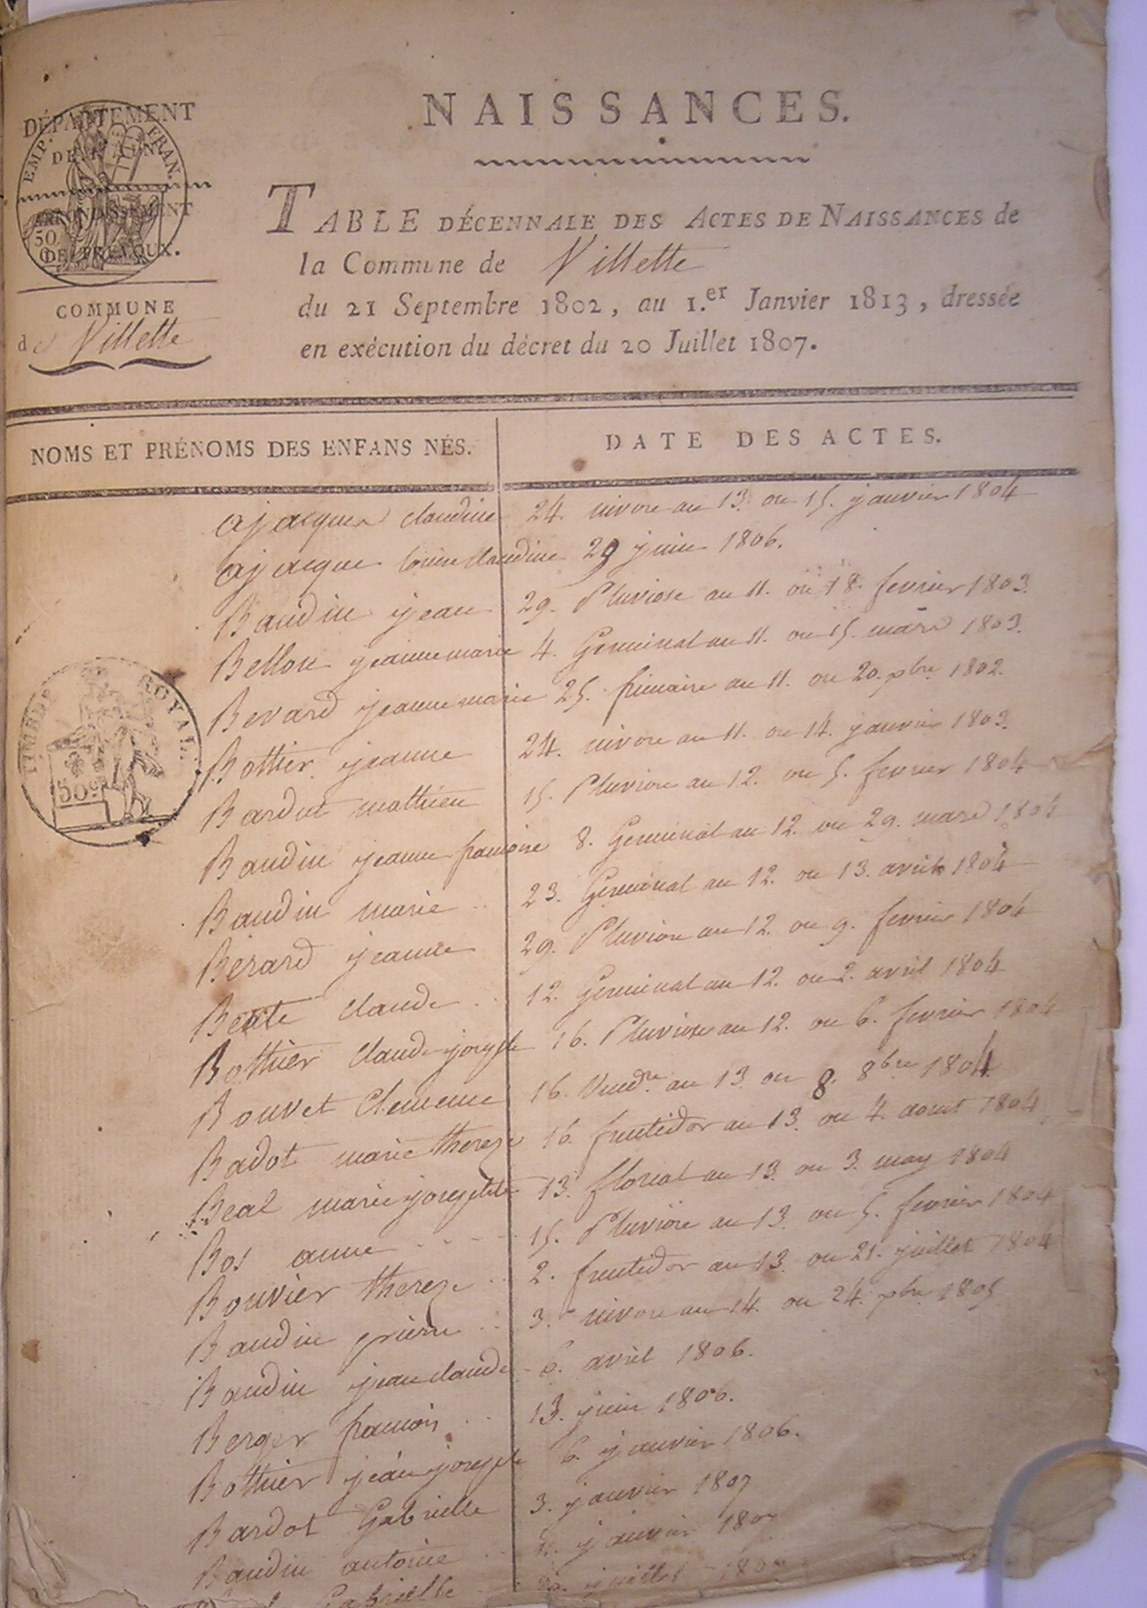 NAISSANCES.
DÉPARTEMENT
DE L'AIN
EMP. FRAN.
ARRONDISSEMENT
50
DE TREVOUX.
COMMUNE
de Villette
TABLE DÉCENNALE DES ACTES DE NAISSANCES de
la Commune de Villette
du 21 Septembre 1802, au 1.er Janvier 1813, dressée
en exécution du décret du 20 Juillet 1807.
NOMS ET PRÉNOMS DES ENFANS NÉS. DATE DES ACTES.
ajacques claudine 24. nivose an 13. ou 15. janvier 1804
ajacque claudine 29 juin 1806.
Baudin jean 29. Pluviose an 11. ou 18. fevrier 1803.
Bellon jeanne marie 4. Germinal an 11. ou 15. mars 1803.
Bevard jeanne marie 25. frimaire an 11. ou 20. xbre 1802.
TIMBRE ROYAL.
50c
Bottier jeanne 24. nivose an 11. ou 14. janvier 1803.
Bardot mathieu 15. Pluviose an 12. ou 5. fevrier 1804
Baudin jeanne francoise 8. Germinal an 12. ou 29. mars 1804
Baudin marie 23. Germinal an 12. ou 13. avril 1804
Bérard jeanne 29. Pluviose an 12. ou 9. fevrier 1804
claude 12. Germinal an 12. ou 2. avril 1804
Bottier claude joseph 16. Pluviose an 12. ou 6. fevrier 1804
Bouvet Clemence 16. Vendre an 13. ou 8. 8bre 1804
Badot marie thereze 16. fructidor an 13. ou 4. aout 1804
Beal marie josephte 13. florial an 13. ou 3. may 1804
Bos anne 15. Pluviose an 13. ou 5. fevrier 1804
Bouvier thereze 2. fructidor an 13. ou 21. juillet 1804
Baudin pierre 3. nivose an 14. ou 24. xbre 1805
Baudin jean claude 6. avril 1806.
Berger francois 13. juin 1806.
Bottier jean joseph 6. janvier 1806.
Bardot Gabrielle 3. janvier 1807
Baudin antoine janvier 1807
Gabrielle juillet